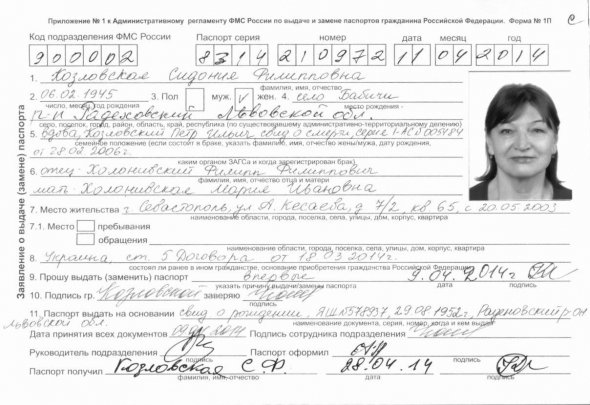 Приложение № 1 к Административному регламенту ФМС России по выдаче и замене паспортов гражданина Российской Федерации. Форма № 1П
Код подразделения ФМС России Паспорт серия номер дата месяц год
900002 8314 210972 11 04 2014
1. Козловская Сидония Филипповна
фамилия, имя, отчество
2. 06.02.1945 3. Пол муж. V жен. 4. село Бабичи
число, месяц, год рождения место рождения -
р-н Радеховский Львовской обл.
село, поселок, город, район, область, край, республика (по существующему административно-территориальному делению)
5. вдова, Козловский Петр свид о смерти, серия 1-АСБ 005484
семейное положение (если состоит в браке, указать фамилию, имя, отчество жены/мужа, дату рождения,
от 28.02.2006г.
каким органом ЗАГСа и когда зарегистрирован брак).
6. отец - Холонивский Филипп Филиппович
фамилия, имя, отчество отца и матери
мать - Холонивская Мария Ивановна
7. Место жительства г Севастополь, ул А. Кесаева, д 7/2, кв 65, с 20.05.2003
наименование области, города, поселка, села, улицы, дом, корпус, квартира
7.1. Место пребывания
обращения
наименование области, города, поселка, села, улицы, дом, корпус, квартира
8. Украина, ст. 5 Договора от 18.03.2014г.
состоял ли ранее в ином гражданстве, основание приобретения гражданства Российской Федерации
9. Прошу выдать (заменить) паспорт впервые 9.04.2014г
указать причину выдачи/замены подпись
10. Подпись гр. Козловской заверяю
подпись
11. Паспорт выдать на основании свид о рождении, 29.08.1952г.
наименование документа, серия, номер, когда и кем выдан
Львовской обл.
Дата принятия всех документов Подпись сотрудника подразделения
подпись
Руководитель подразделения Паспорт оформил
подпись подпись
Паспорт получил Козловская С.Ф. 28.04.14
фамилия, имя, отчество дата подпись
Заявление о выдаче (замене) паспорта